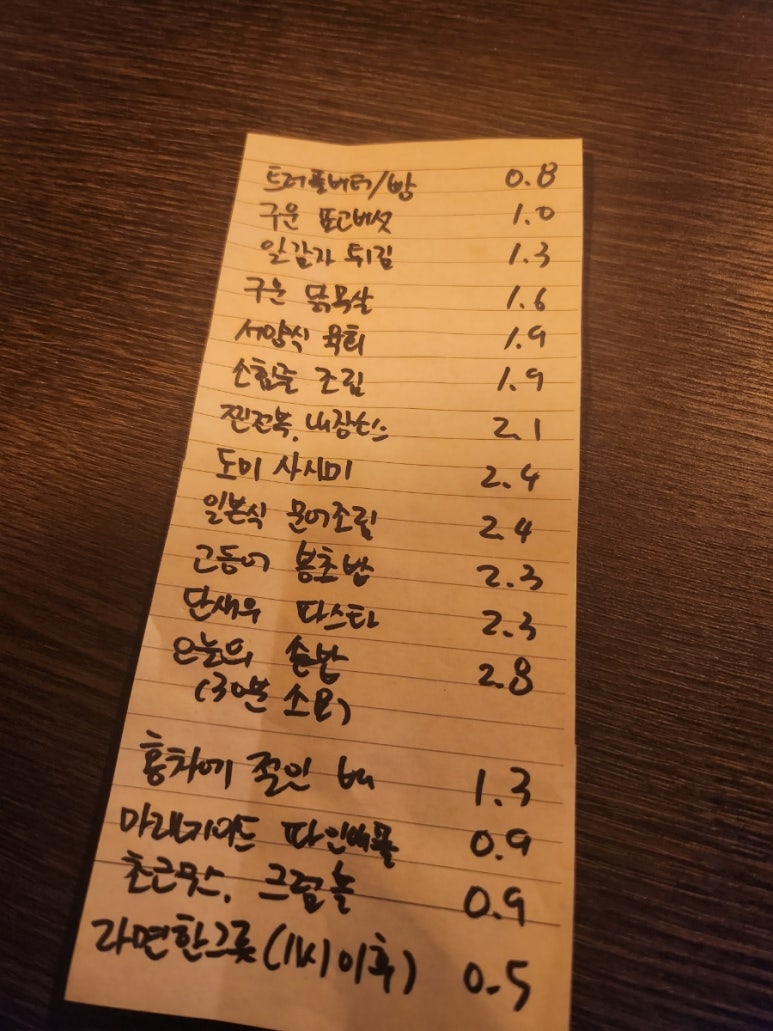 트러플버터/빵 0.8
구운 표고버섯 1.0
알감자 튀김 1.3
구운 닭목살 1.6
서양식 육회 1.9
소힘줄 조림 1.9
찐전복, 내장소스 2.1
도미 사시미 2.4
일본식 문어조림 2.4
고등어 봉초밥 2.3
단새우 파스타 2.3
오늘의 솥밥 2.8
(30분 소요)
홍차에 절인 배 1.3
마리네이드 파인애플 0.9
초코무스, 크럼블 0.9
라면한그릇(11시이후) 0.5